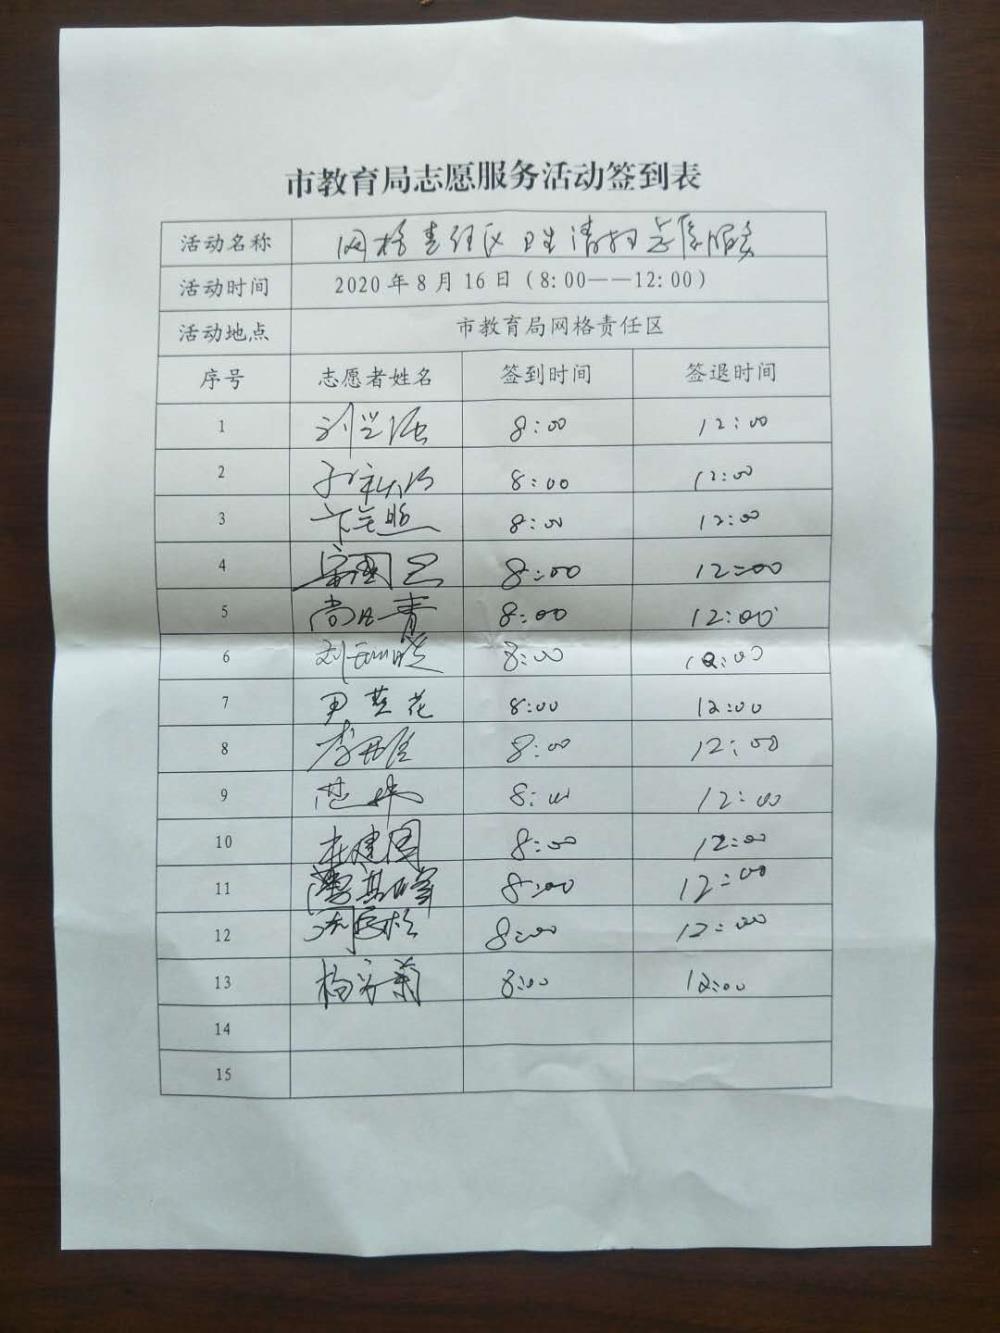 市教育局志愿服务活动签到表
活动名称 网格责任区卫生清扫志愿服务
活动时间 2020年8月16日（8:00——12:00）
活动地点 市教育局网格责任区
序号 志愿者姓名 签到时间 签退时间
1 8:00 12:00
2 8:00 12:00
3 8:00 12:00
4 8:00 12:00
5 8:00 12:00
6 刘 8:00 12:00
7 尹 花 8:00 12:00
8 李 8:00 12:00
9 范 8:00 12:00
10 建国 8:00 12:00
11 8:00 12:00
12 8:00 12:00
13 杨 菊 8:00 12:00
14
15